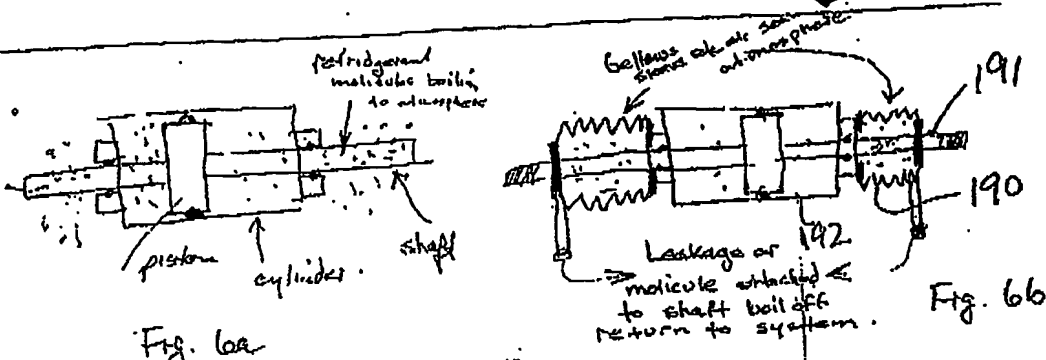 refridgerant
molicule boiling
to atmosphere
piston
cylinder.
shaft
Fig. 6a
Bellows
atmosphere.
191
190
192
Leakage or
molicule attached
to shaft boil off
return to system.
Fig. 6b